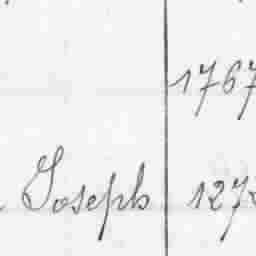 1767
Joseph 127